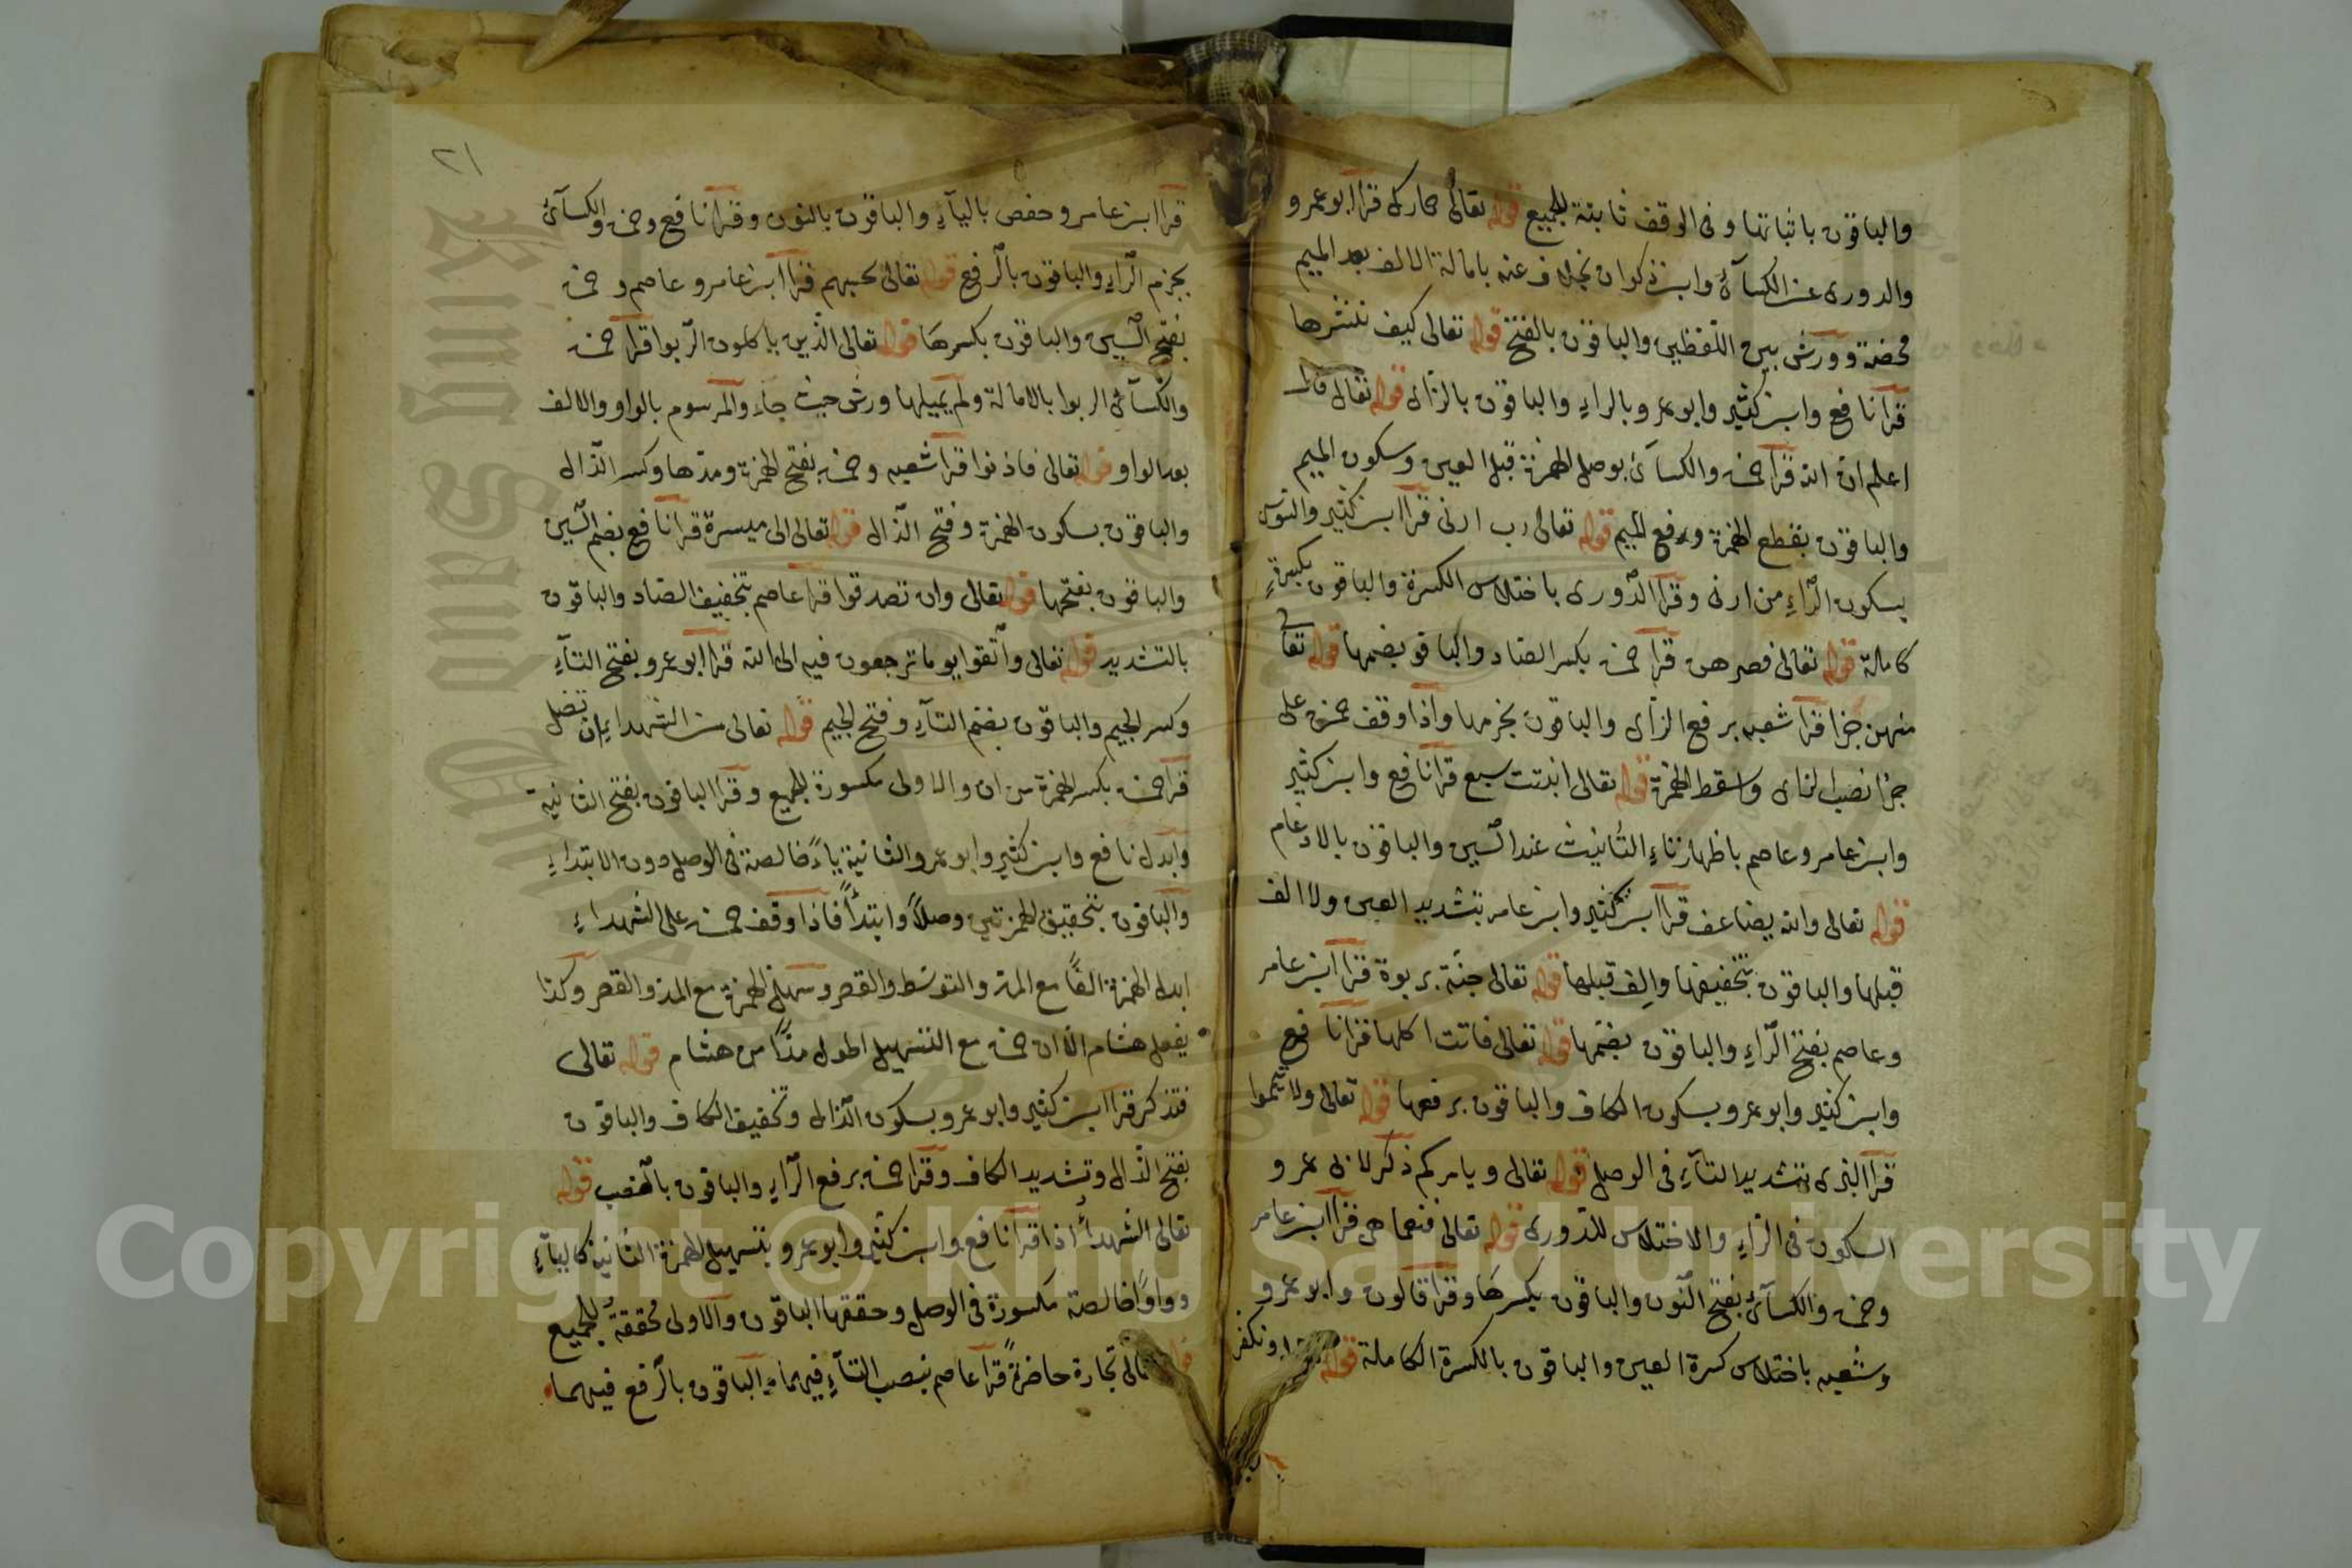 والباقون باثباتها وفى الوقف ثابتة للجميع قوله تعالى حمارك قرا ابوعمرو
والدورى عن الكسآئ وابن ذكوان بخلاف عنه بامالة الالف بعد الميم
محضة وورش بين اللفظين والباقون بالفتح قوله تعالى كيف ننشرها
قرا نافع وابن كثير وابوعمرو بالراء والباقون بالزاى قوله تعالى قال
اعلم ان الله قرا حمزه والكسآئ بوصل الهمزة قبل العين وسكون الميم
والباقون بقطع الهمزة ورفع الميم قوله تعالى رب ارنى قرا ابن كثير والسوسى
بسكون الرّاءِ من ارنى وقرا الدّورى باختلاس الكسرة والباقون بكسرةٍ
كاملة قوله تعالى فصرهن قرا حمزه بكسر الصاد والباقو بضمها قوله تعالى
منهن جزا قرا شعبه برفع الزاى والباقون بجزمها واذا وقف حمزه على
جزا نصب الزاى واسقط الهمزة قوله تعالى انبتت سبع قرا نافع وابن كثير
وابن عامر وعاصم باظهار تاءِ التأنيث عند السّين والباقون بالادغام
قوله تعالى والله يضاعف قرا ابن كثير وابن عامر بتشديد العين ولا الف
قبلها والباقون بتخفيفها والف قبلها قوله تعالى جنّة بربوة قرا ابن عامر
وعاصم بفتح الرّاءِ والباقون بضمّها قوله تعالى فاتت اكلها قرا نافع
وابن كثير وابوعمرو بسكون الكاف والباقون برفعها قوله تعالى ولا تيمموا
قرا البزى بتشديد التآءِ فى الوصل قوله تعالى ويامركم ذكر لابى عمرو
السكون فى الراءِ والاختلاس للدّورى قوله تعالى فنعما هى قرا ابن عامر
وحمزه والكسآئ بفتح النّون والباقون بكسرها وقرا قالون وابوعمرو
وشعبه باختلاس كسرة العين والباقون بالكسرة الكاملة قوله ونكفر
٢١
قرا ابن عامر وحفص باليآءِ والباقون بالنون وقرا نافع وحمزه والكسآئ
بجزم الرّاءِ والباقون بالرّفع قوله تعالى تحسبهم قرا ابن عامر وعاصم وحمزه
بفتح السّين والباقون بكسرها قوله تعالى الّذين ياكلون الرّبوا قرا حمزه
والكسآئ الربوا بالامالة ولم يميلها ورش حيث جاء والمرسوم بالواو والالف
بعد الواو قوله تعالى فاذنوا قرا شعبه وحمزه بفتح الهمزة ومدّها وكسر الذّال
والباقون بسكون الهمزة وفتح الذّال قوله تعالى الى ميسرة قرا نافع بضم السّين
والباقون بفتحها قوله تعالى وان تصدقوا قرا عاصم بتخفيف الصّاد والباقون
بالتشديد قوله تعالى واتّقوا يوما ترجعون فيه الى الله قرا ابوعمرو بفتح التآءِ
وكسر الجيم والباقون بضم التآءِ وفتح الجيم قوله تعالى من الشهداءِ ان تضل
قرا حمزه بكسر الهمزة من ان والاولى مكسورة للجميع وقرا الباقون بفتح الثانية
وابدل نافع وابن كثير وابوعمرو الثانية ياءً خالصة فى الوصل دون الابتداءِ
والباقون بتحقيق الهمزتين وصلاً وابتداً فاذا وقف حمزه على الشهداءِ
ابدل الهمزة الفًا مع المدّ والتوسّط والقصر وسهل الهمزة مع المدّ والقصر وكذا
يفعل هشام الا ان حمزه مع التسهيل اطول مدًّا من هشام قوله تعالى
فتذكر قرا ابن كثير وابوعمرو بسكون الذّال وتخفيف الكاف والباقون
بفتح الذّال وتشديد الكاف وقرا حمزه برفع الرّاءِ والباقون بالنصب قوله
تعالى الشهدآءُ اذا قرا نافع وابن كثير وابوعمرو بتسهيل الهمزة الثانية كاليآءِ
وواوًا خالصة مكسورة فى الوصل وحققها الباقون والاولى محققة للجميع
تعالى تجارة حاضرةً قرا عاصم بنصب التآءِ فيهما والباقون بالرّفع فيهما
Copyright © King Saud University
King Saud University